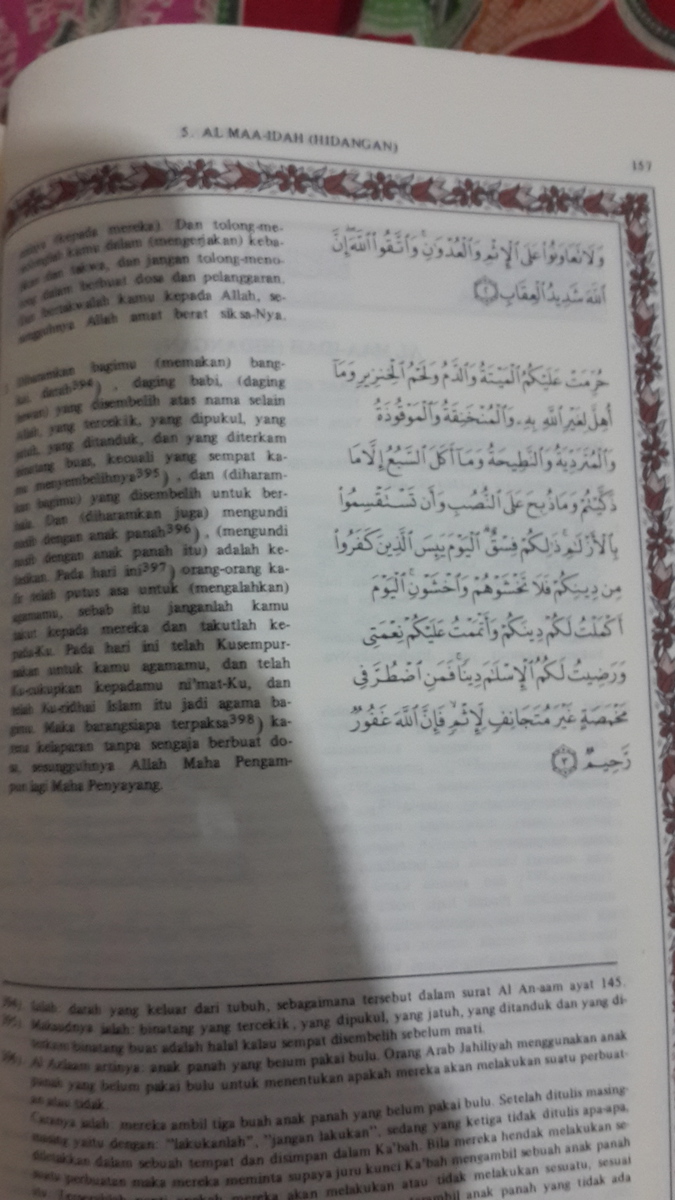 5. AL MAA-IDAH (HIDANGAN)
157
(kepada mereka). Dan tolong-me-
kamu dalam (mengerjakan) keba-
dan takwa, dan jangan tolong-meno-
dalam berbuat dosa dan pelanggaran.
Dan bertakwalah kamu kepada Allah, se-
sungguhnya Allah amat berat siksa-Nya.
Diharamkan bagimu (memakan) bang-
kai, darah394), daging babi, (daging
hewan) yang disembelih atas nama selain
Allah, yang tercekik, yang dipukul, yang
jatuh, yang ditanduk, dan yang diterkam
binatang buas, kecuali yang sempat ka-
mu menyembelihnya395), dan (diharam-
kan bagimu) yang disembelih untuk ber-
hala. Dan (diharamkan juga) mengundi
nasib dengan anak panah396), (mengundi
nasib dengan anak panah itu) adalah ke-
fasikan. Pada hari ini397) orang-orang ka-
fir telah putus asa untuk (mengalahkan)
agamamu, sebab itu janganlah kamu
takut kepada mereka dan takutlah ke-
pada-Ku. Pada hari ini telah Kusempur-
nakan untuk kamu agamamu, dan telah
Ku-cukupkan kepadamu ni'mat-Ku, dan
telah Ku-ridhai Islam itu jadi agama ba-
gimu. Maka barangsiapa terpaksa398) ka-
rena kelaparan tanpa sengaja berbuat do-
sa, sesungguhnya Allah Maha Pengam-
pun lagi Maha Penyayang.
وَلَا تَعَاوَنُوا۟ عَلَى ٱلْإِثْمِ وَٱلْعُدْوَٰنِ ۚ وَٱتَّقُوا۟ ٱللَّهَ ۖ إِنَّ
ٱللَّهَ شَدِيدُ ٱلْعِقَابِ ٢
حُرِّمَتْ عَلَيْكُمُ ٱلْمَيْتَةُ وَٱلدَّمُ وَلَحْمُ ٱلْخِنزِيرِ وَمَآ
أُهِلَّ لِغَيْرِ ٱللَّهِ بِهِۦ وَٱلْمُنْخَنِقَةُ وَٱلْمَوْقُوذَةُ
وَٱلْمُتَرَدِّيَةُ وَٱلنَّطِيحَةُ وَمَآ أَكَلَ ٱلسَّبُعُ إِلَّا مَا
ذَكَّيْتُمْ وَمَا ذُبِحَ عَلَى ٱلنُّصُبِ وَأَن تَسْتَقْسِمُوا۟
بِٱلْأَزْلَٰمِ ۚ ذَٰلِكُمْ فِسْقٌ ۗ ٱلْيَوْمَ يَئِسَ ٱلَّذِينَ كَفَرُوا۟
مِن دِينِكُمْ فَلَا تَخْشَوْهُمْ وَٱخْشَوْنِ ۚ ٱلْيَوْمَ
أَكْمَلْتُ لَكُمْ دِينَكُمْ وَأَتْمَمْتُ عَلَيْكُمْ نِعْمَتِى
وَرَضِيتُ لَكُمُ ٱلْإِسْلَٰمَ دِينًا ۚ فَمَنِ ٱضْطُرَّ فِى
مَخْمَصَةٍ غَيْرَ مُتَجَانِفٍ لِّإِثْمٍ ۙ فَإِنَّ ٱللَّهَ غَفُورٌ
رَّحِيمٌ ٣
394). Ialah: darah yang keluar dari tubuh, sebagaimana tersebut dalam surat Al An-aam ayat 145.
395). Maksudnya ialah: binatang yang tercekik, yang dipukul, yang jatuh, yang ditanduk dan yang di-
terkam binatang buas adalah halal kalau sempat disembelih sebelum mati.
396). Al Azlaam artinya: anak panah yang belum pakai bulu. Orang Arab Jahiliyah menggunakan anak
panah yang belum pakai bulu untuk menentukan apakah mereka akan melakukan suatu perbuat-
an atau tidak.
Caranya ialah: mereka ambil tiga buah anak panah yang belum pakai bulu. Setelah ditulis masing-
masing yaitu dengan: "lakukanlah", "jangan lakukan", sedang yang ketiga tidak ditulis apa-apa,
diletakkan dalam sebuah tempat dan disimpan dalam Ka'bah. Bila mereka hendak melakukan se-
suatu perbuatan maka mereka meminta supaya juru kunci Ka'bah mengambil sebuah anak panah
itu. apakah mereka akan melakukan atau tidak melakukan sesuatu, sesuai
anak panah yang tidak ada